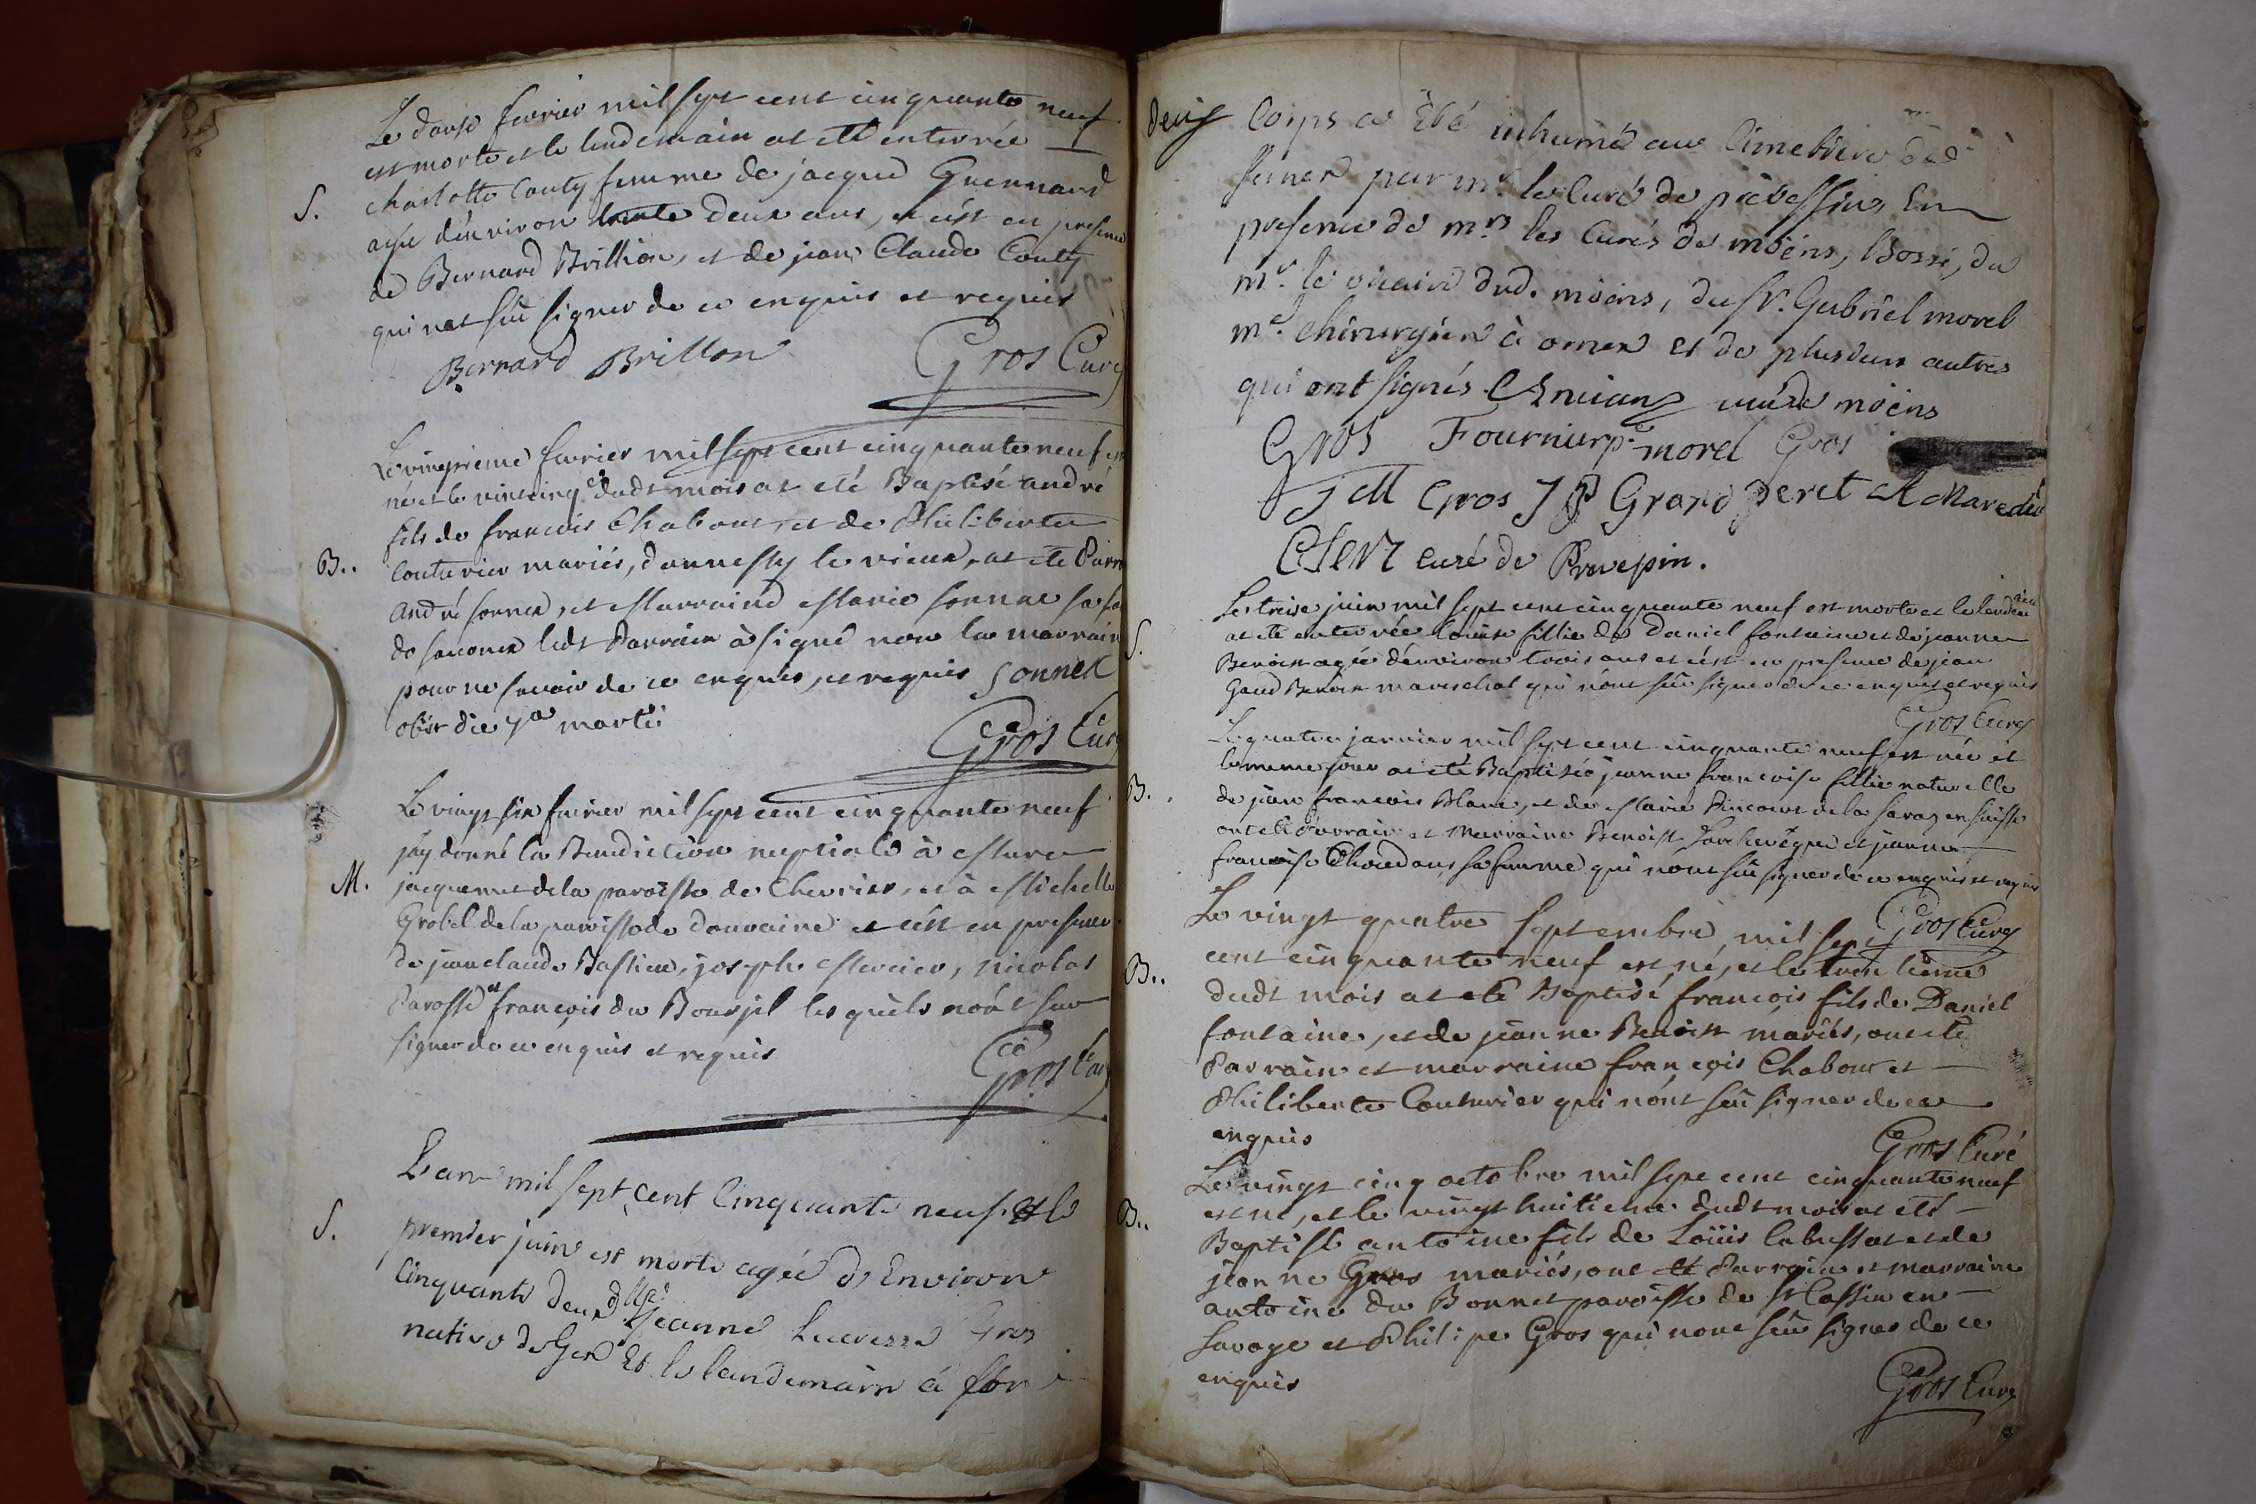 Le douse fevrier mil sept cent cinquante neuf
est morte et le lendemain at eté enterrée
S. charlotte Couty femme de jacque Guennard
agée d'environ trente deux ans, et c'est en presence
de Bernard Brillion, et de jean Claude Couty
qui nat sçû signer de ce enquis et requis
Bernard Brillon Gros Curé
Le vingtieme fevrier mil sept cent cinquante neuf est
né et le vintcinq dudt mois at eté Baptisé andré
fils de francois Chabout, et de Philiberte
B.. Couturier mariés, d'annessy le vieux, at eté Parrain
andré sonnex, et Marraine Marie sonnex sa
de saconex ledt Parrain à signé non la marraine
pour ne savoir de ce enquis, et requis sonnex
obiit die 7a martii
Gros Curé
Le vingt six fevrier mil sept cent cinquante neuf
j'ay donné la Benediction nuptiale à Marc
M. jacquemet de la paroisse de Chevrier, et à Michelle
Grobel de la paroisse de Douvaine et c'est en presence
de jean claude Bastian, joseph Mercier, nicolas
Parosse et françois du Bourjel les quels nont sçu
signer de ce enquis et requis
Gros Curé
L'an mil sept cent Cinquante neuf et le
S. premier juin est morte agée d'Environ
Cinquante deux dlle jeanne Lucresse Gros
native de Gex Et le landemain à son
Deuis Corps a Eté inhumé au Cimetiere de
par mr le Curé de prevessin, En
presence de mrs les Curés de moëns, Bossi, du
mr le vicaire dud. moëns, du sr. Gabriel morel
me chirurgien à ornex et de plusieurs autres
qui ont signés curé de moëns
Gros Fournier p. morel Gros
J M Gros J P Grand peret
curé de Prevesin.
Le treise juin mil sept cent cinquante neuf est morte et le lendemain
S. at eté enterrée louise fillie de Daniel fontaine et de jeanne
Benoist agée d'environ trois ans et c'est en presence de jean
Benoit mareschal qui n'ont sçû signer de ce enquis et requis
Gros Curé
Le quatre janvier mil sept cent cinquante neuf est née et
le meme jour at eté Baptisée jeanne françoise fillie naturelle
B. de jean françois Blanc, et de Marie de la saraz en suisse
ont eté parrain et Marraine Benoist et jeanne
françoise sa femme qui nont sçû signer de ce enquis et requis
Gros Curé
Le vingt quatre septembre mil sept
cent cinquante neuf est né, et le trentieme
B.. dudt mois at eté Baptisé francois fils de Daniel
fontaine, et de jeanne Benoist mariés, ont eté
Parrain et marraine françois Chabout et
Philiberte Couturier qui nont sçû signer de ce
enquis
Gros Curé
Le vingt cinq octobre mil sept cent cinquante neuf
est né, et le vingt huitieme dudt mois at eté
B.. Baptisé antoine fils de Loüis labussat et de
jeanne Gros mariés, ont eté Parrain et marraine
antoine du Bonnet paroisse de st Cassin en
Savoye et Philipe Gros qui nont sçû signer de ce
enquis
Gros Curé